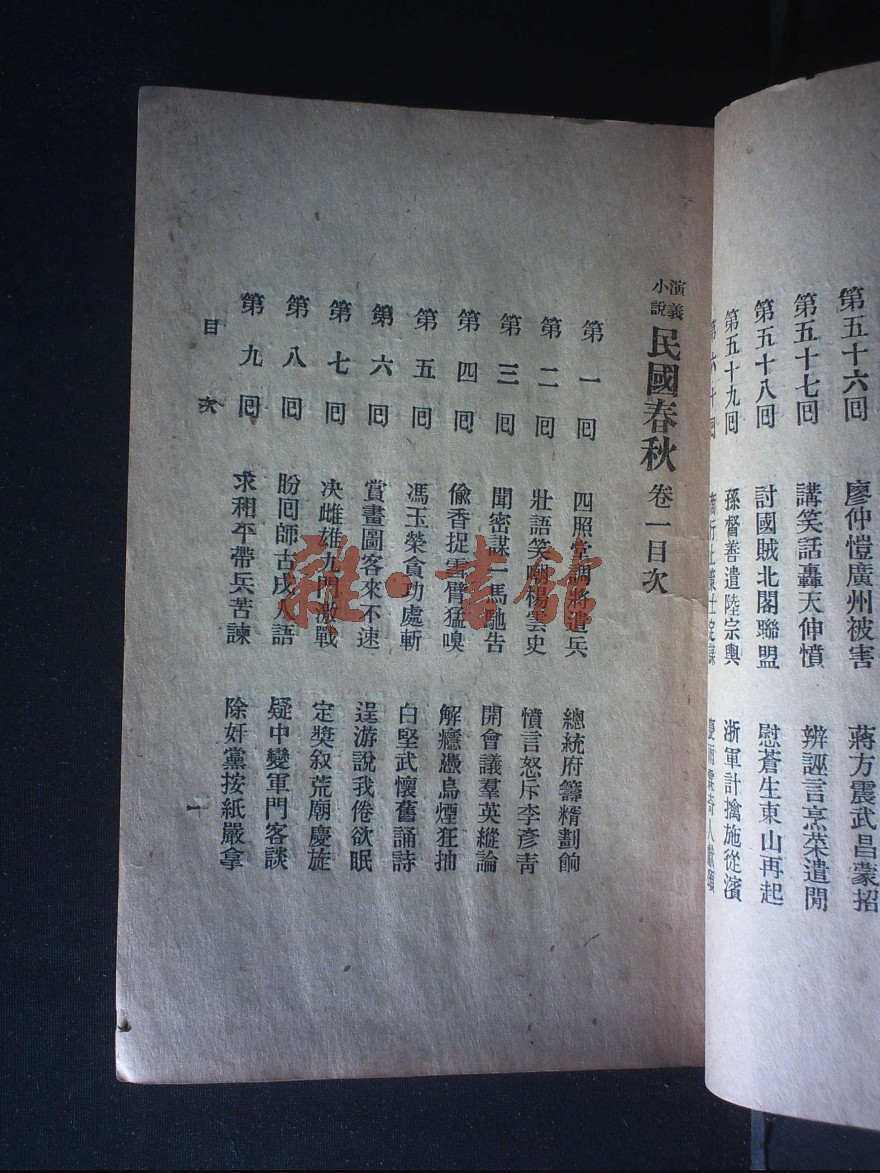 第五十六回 廖仲愷廣州被害 蔣方震武昌蒙招
第五十七回 講笑話轟天伸憤 辨誣言烹茶遣閒
第五十八回 討國賊北閣聯盟 慰蒼生東山再起
第五十九回 孫督善遣陸宗輿 浙軍計擒施從濱
第六十回
演義小說 民國春秋 卷一目次
第一回 四照堂調將遣兵 總統府籌糈劃餉
第二回 壯語笑 楊雲史 憤言怒斥李彥青
第三回 聞密謀一馬馳告 開會議羣英縱論
第四回 偸香捉雲臂猛嗅 解癮憑烏煙狂抽
第五回 馮玉榮貪功處斬 白堅武懷舊誦詩
第六回 賞畫圖客來不速 逞游說我倦欲眠
第七回 决雌雄九門激戰 定獎叙荒廟慶旋
第八回 盼囘師古戍人語 疑中變軍門客談
第九回 求和平帶兵苦諫 除奸黨按紙嚴拿
目次
一
雜·書館